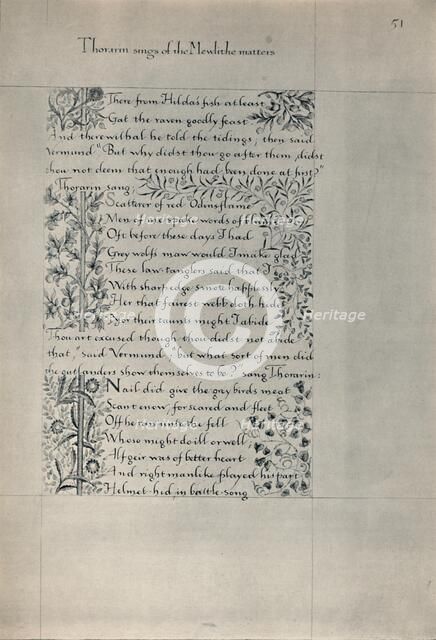 51
Thorarin sings of the Mewlithe matters
There from Hilda's fish at least
Gat the raven goodly feast
And therewithal he told the tidings; then said
Vermund "But why didst thou go after them, didst
thou not deem that enough had been done at first?"
Thorarin sang:
Scatterer of red Odinsflame
Men of me spake words of
Oft before these days I had
Grey wolf's maw would I make glad
These law-tanglers said that I
With sharp edge smote haplessly
Her that fairest webb cloth hide
Nor their taunts might I abide
Thou art excused though thou didst not abide
that," said Vermund, "but what sort of men did
the outlanders show themselves to be?" sang Thorarin:
Nail did give the grey birds meat
Scant enow, for scared and fleet
Off he ran unto he fell
Whose might do ill or well;
Alfgeir was of better heart
And right manlike played his part
Helmet-hid in battle-song
Heritage
Heritage
Heritage
Heritage